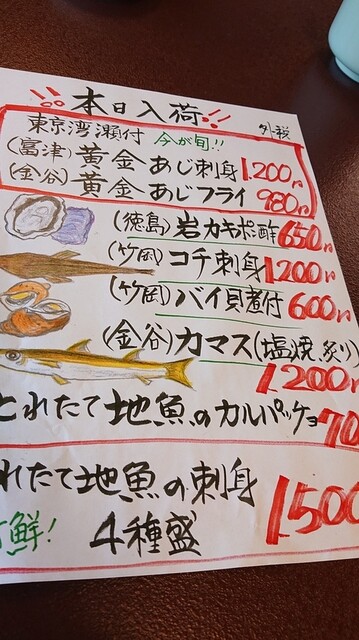 本日入荷!!
外税
東京湾瀬付 今が旬!!
(富津) 黄金あじ刺身 1,200円
(金谷) 黄金あじフライ 980円
(徳島) 岩カキポン酢 650円
(竹岡) コチ刺身 1200円
(竹岡) バイ貝煮付 600円
(金谷) カマス(塩焼、炙り)
1,200
とれたて地魚のカルパッチョ 70
れたて地魚の刺身
4種盛 1,500
鮮!